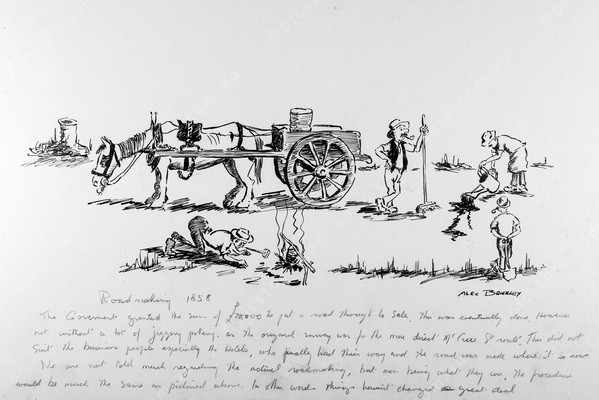 ALEC BEVERLEY
Roadmaking 1858
The Goverment granted the sum of £70000 to put a road through to Sale. This was eventually done, However
not without a lot of jiggery pokery. as the original survey was for the more direct Mc Crae St route. This did not
Suit the business people especially the Hotels, who finally had their way and the road was made where it is now
We are not told much regarding the actual roadmaking, but men being what they are, the procedure
would be much the same as pictured above. In other words things havint changed a great deal